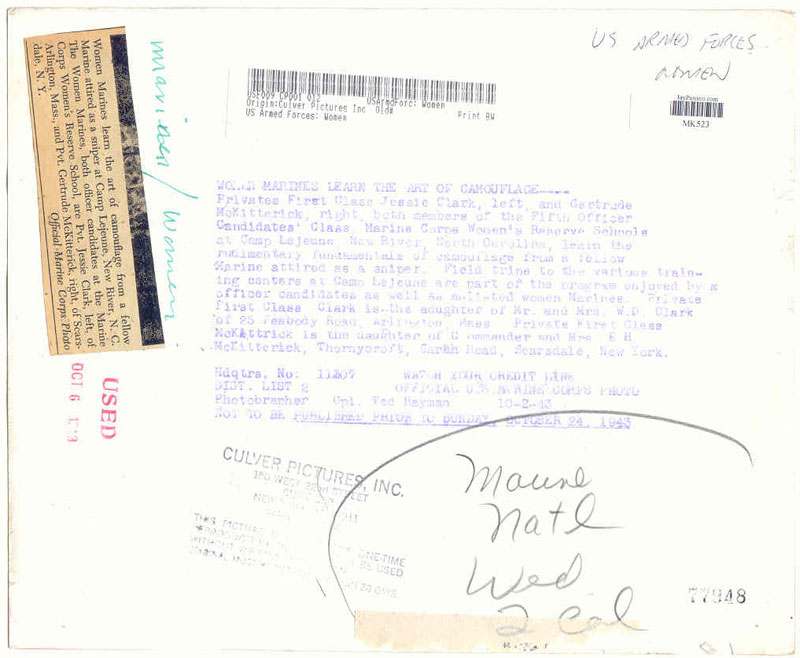 US ARMED FORCES
WOMEN
USE009 CP001 013
Origin:Culver Pictures Inc Old# USArmdForc: Women
US Armed Forces: Women Print BW
JayParrino.com
MK523
marines/women
Women Marines learn the art of camouflage from a fellow
Marine attired as a sniper at Camp Lejeune, New River, N. C.
The Women Marines, both officer candidates at the Marine
Corps Women's Reserve School, are Pvt. Jessie Clark, left, of
Arlington, Mass., and Pvt. Gertrude McKitterick, right, of Scars-
dale, N. Y.
Official Marine Corps Photo
WOMEN MARINES LEARN THE ART OF CAMOUFLAGE----
Privates First Class Jessie Clark, left, and Gertrude
McKitterick, right, both members of the Fifth Officer
Candidates' Class, Marine Corps Women's Reserve Schools
at Camp Lejeune, New River, North Carolina, learn the
rudimentary fundamentals of camouflage from a fellow
Marine attired as a sniper. Field trips to the various train-
ing centers at Camp Lejeune are part of the program enjoyed by
officer candidates as well as enlisted women Marines. Private
First Class Clark is the daughter of Mr. and Mrs. W.D. Clark
of 25 Peabody Road, Arlington, Mass Private First Class
McKittrick is the daughter of Commander and Mrs E H
McKitterick, Thornycroft, Garth Road, Scarsdale, New York.
Hdqtrs. No: WATCH YOUR CREDIT LINE
DIST. LIST 2 OFFICIAL U.S. MARINE CORPS PHOTO
Photographer Cpl. Ted Hayman 10-2-43
NOT TO BE PUBLISHED PRIOR TO SUNDAY, OCTOBER 24, 1943
USED
OCT 6
CULVER PICTURES, INC.
THIS PICTURE
ONE-TIME
BE USED
WITHOUT
Marine
Natl
Wed
2 Col
77948